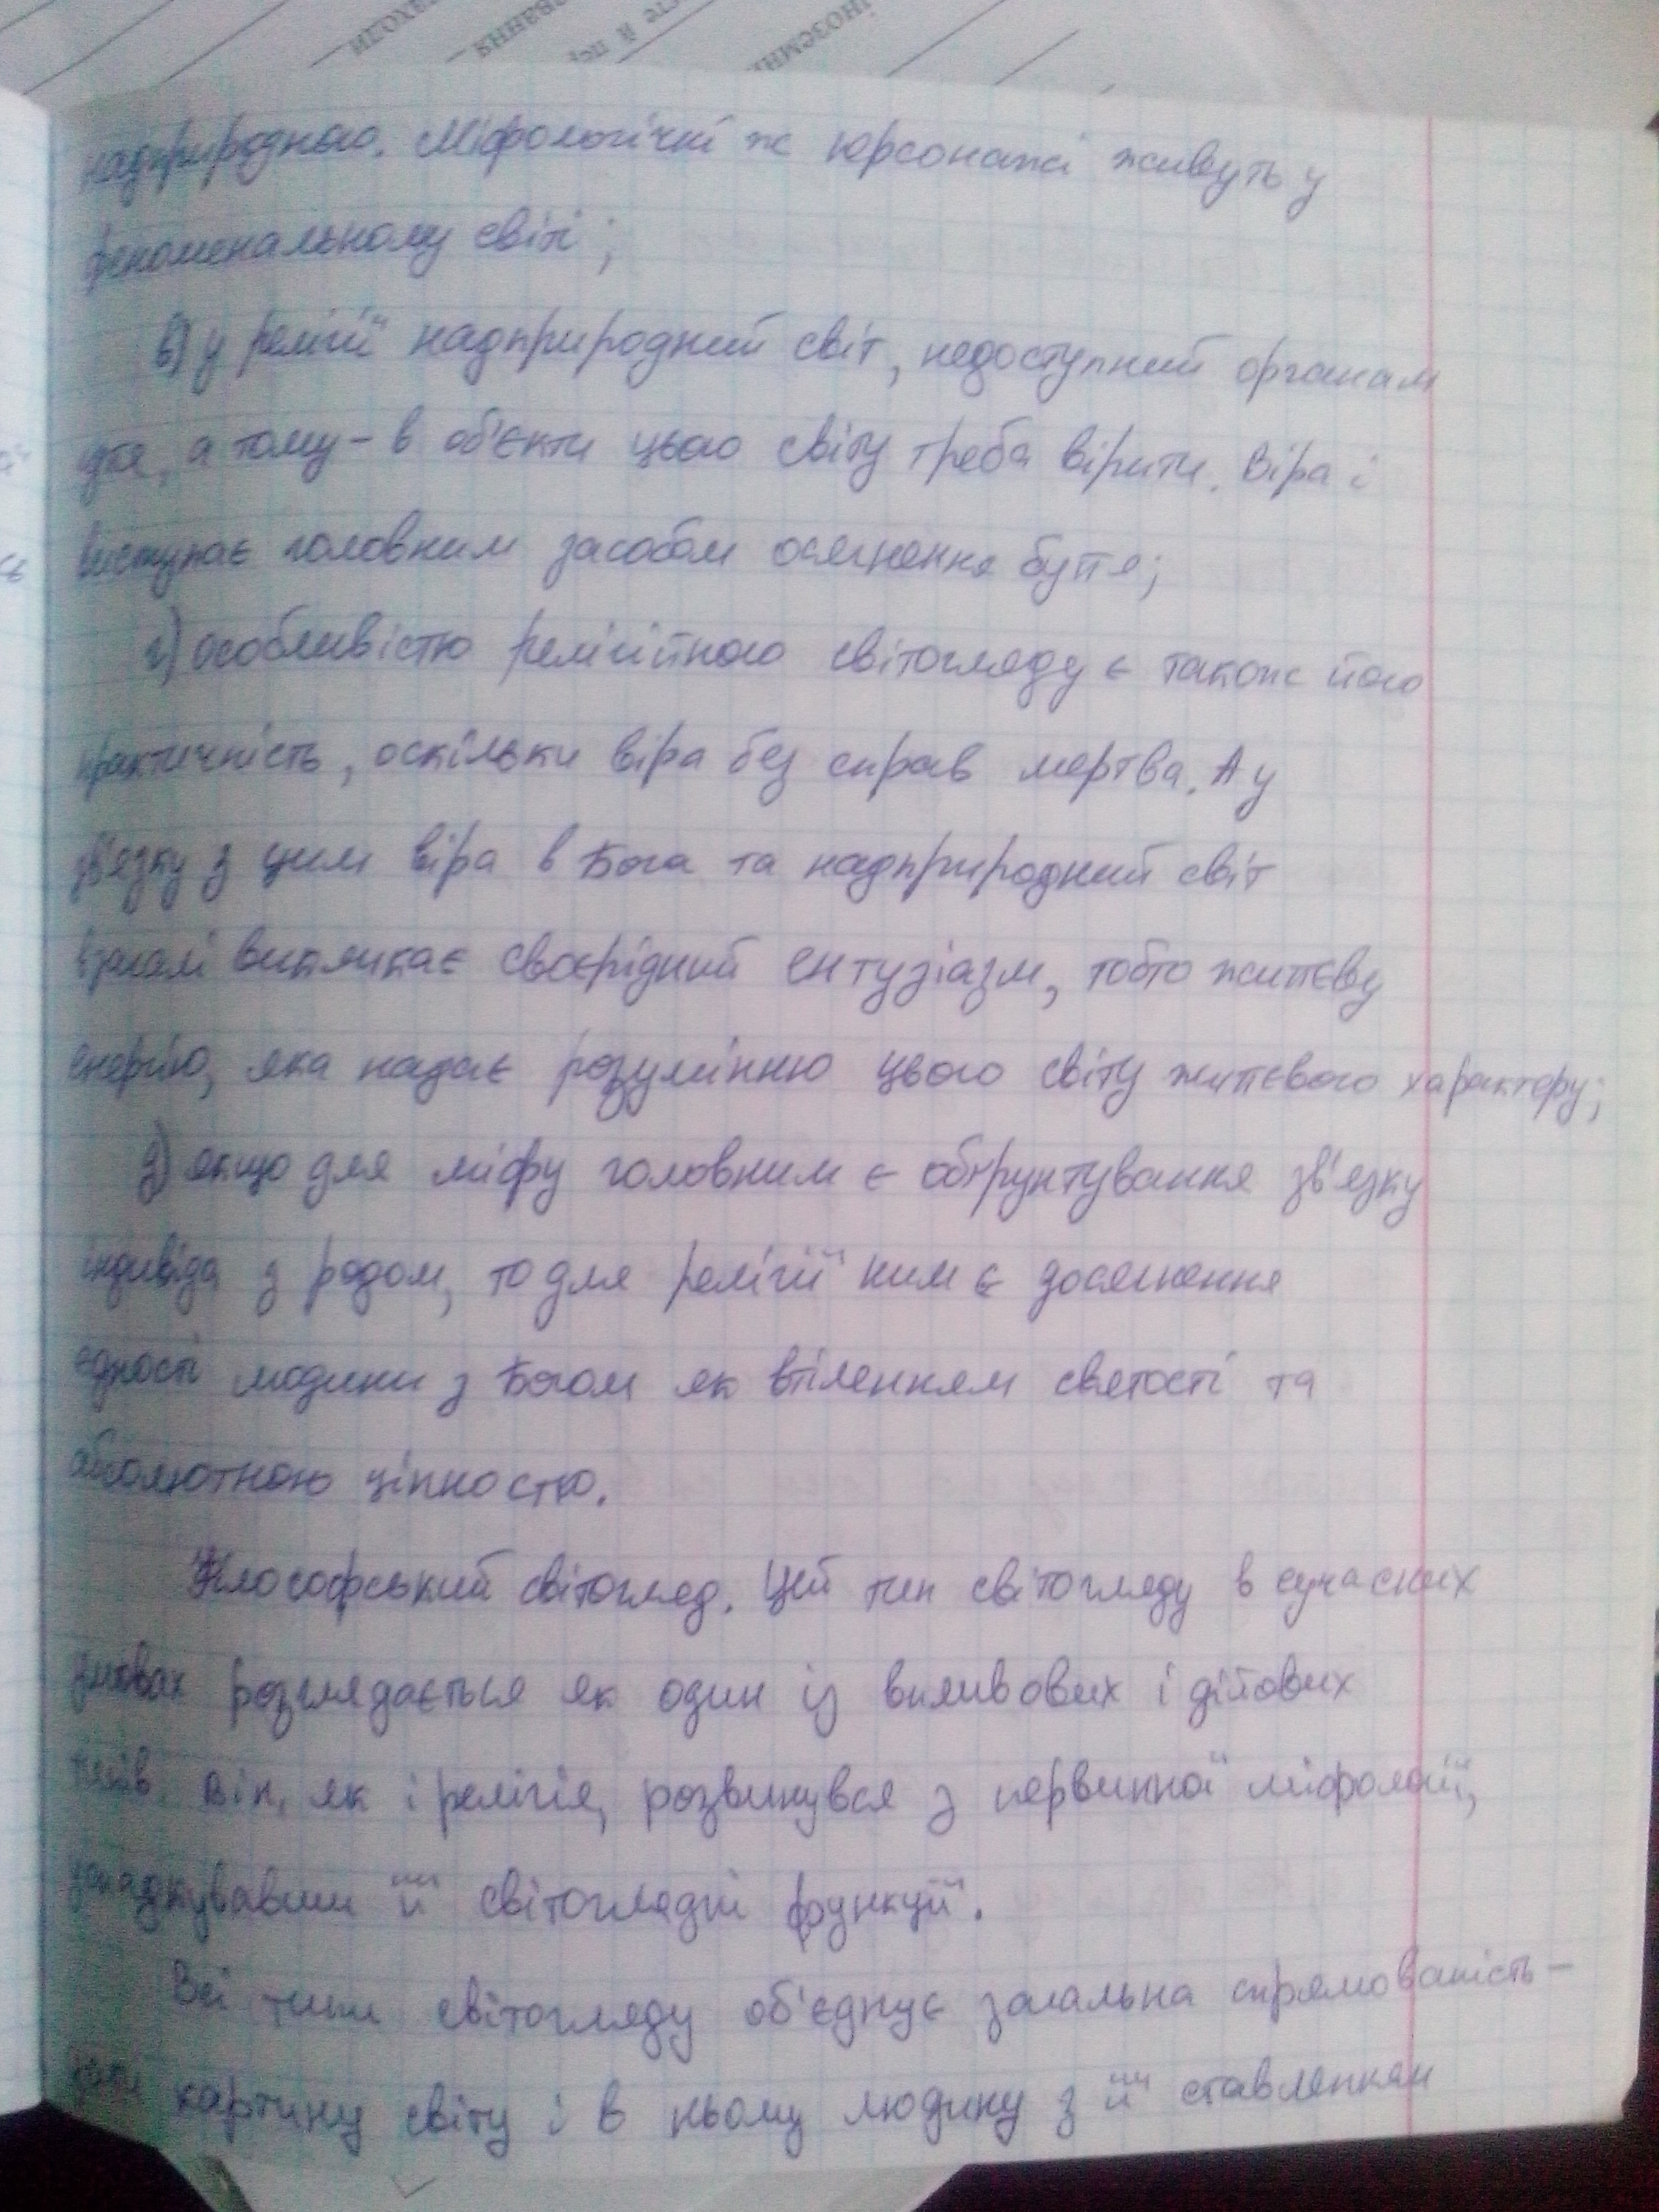 заходи
вання
й пе
інозмн
надприродного. Міфологічні ж персонажі живуть у
феноменальному світі;
в) у релігії надприродний світ, недоступний органам
дтя, а тому - в об'єкти цього світу треба вірити. Віра і
виступає головним засобом осягнення буття;
г) особливістю релігійного світогляду є також його
практичність, оскільки віра без справ мертва. А у
зв'язку з цим віра в Бога та надприродний світ
взагалі викликає своєрідний ентузіазм, тобто життєву
енергію, яка надає розумінню цього світу життєвого характеру;
д) якщо для міфу головним є обґрунтування зв'язку
індивіда з родом, то для релігії ним є досягнення
єдності людини з Богом як втіленням святості та
абсолютною цінностю.
Філософський світогляд. Цей тип світогляду в сучасних
умовах розглядається як один із впливових і дійових
типів. Він, як і релігія, розвинувся з первинної міфології,
успадкувавши її світоглядні функції.
Всі типи світогляду об'єднує загальна спрямованість -
дати картину світу і в ньому людину з її ставленням